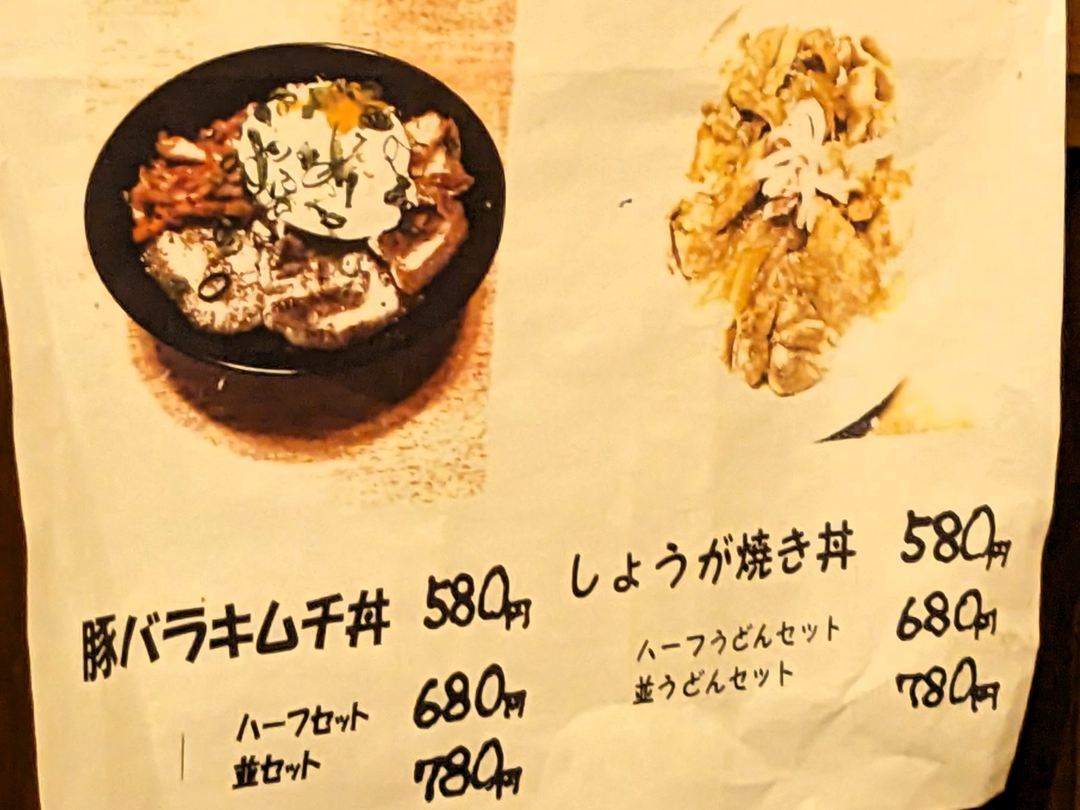 豚バラキムチ丼 580円
ハーフセット 680円
並セット 780円
しょうが焼き丼 580円
ハーフうどんセット 680円
並うどんセット 780円